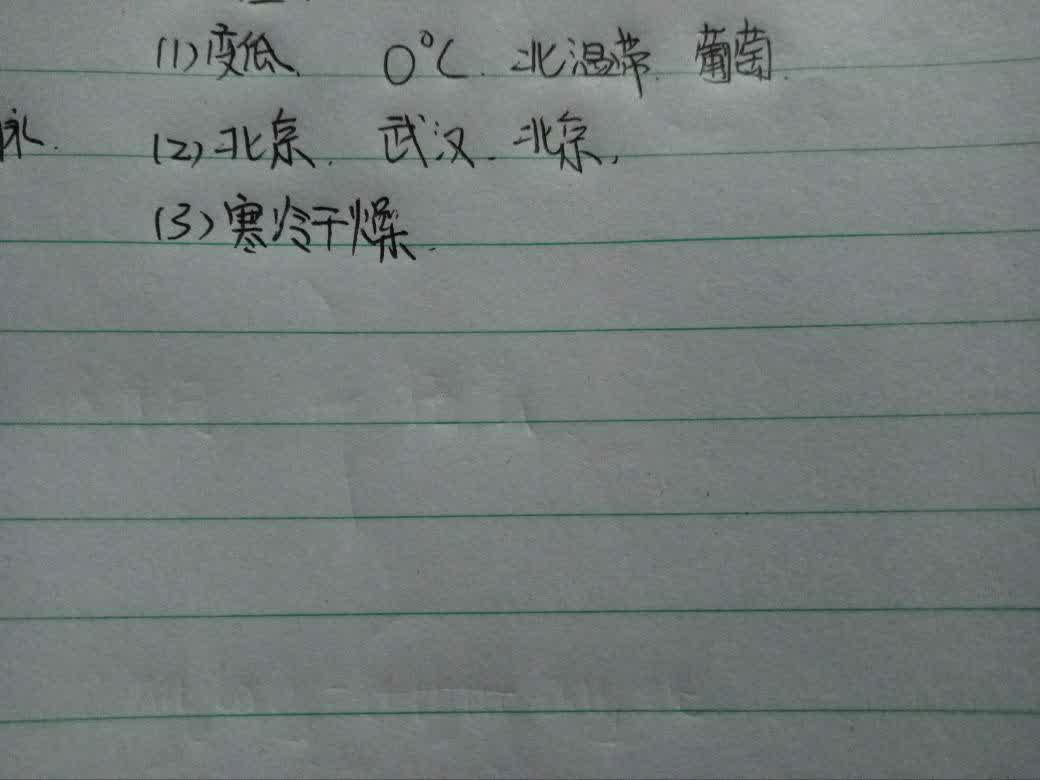 (1)变低. 0℃. 北温带. 葡萄.
(2)北京. 武汉. 北京.
(3)寒冷干燥.